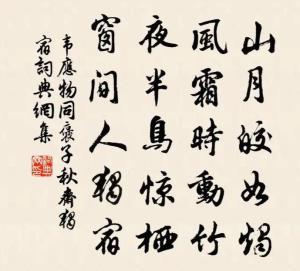 山月皎如燭
風霜時動竹
夜半鳥惊栖
窗間人獨宿
韦應物同褒子秋齋獨
宿詞典網集